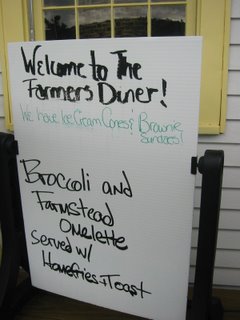 Welcome to The
Farmers Diner!
We have Ice Cream Cones & Brownie
Sundaes!
Broccoli and
Farmstead
Omelette
Served w/
Homefries + Toast